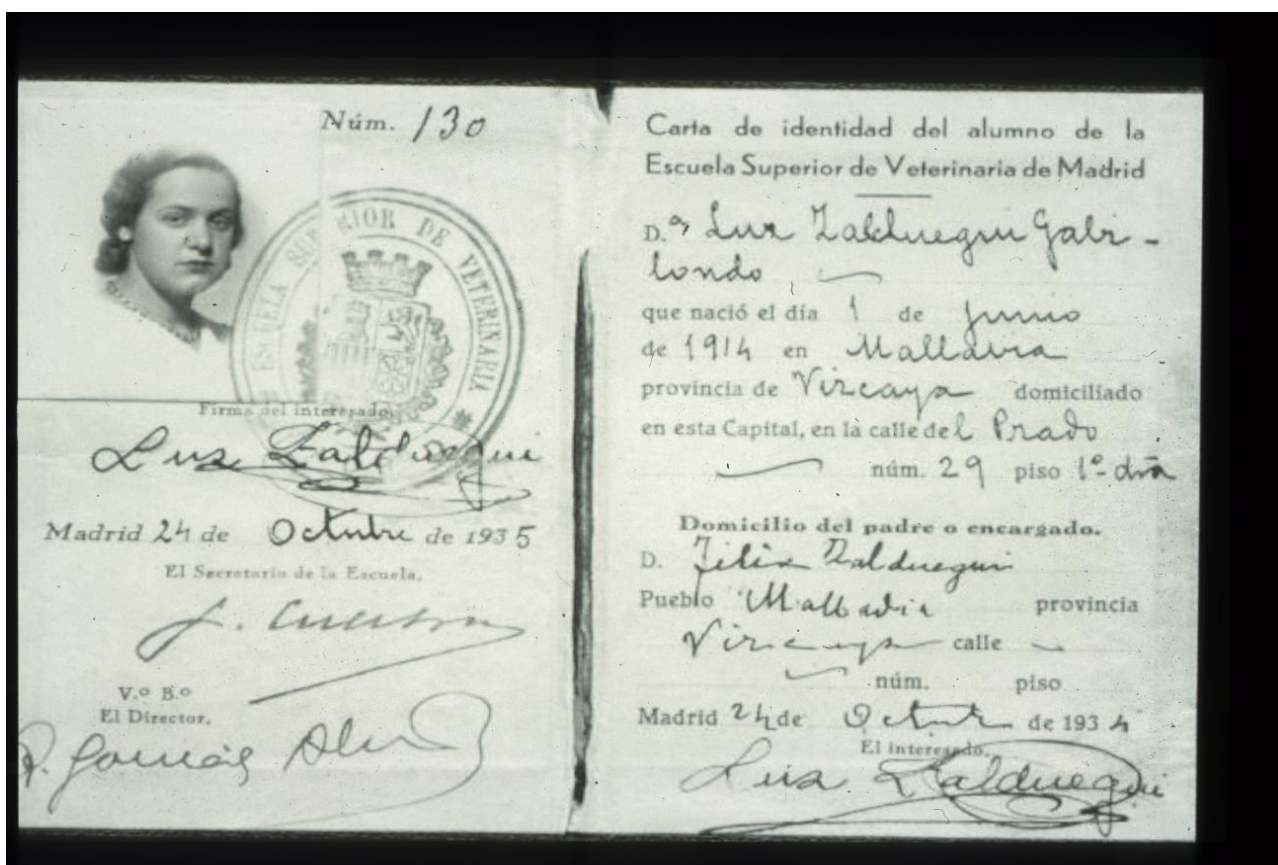 Núm. 130
ESCUELA SUPERIOR DE VETERINARIA
Firma del interesado,
Luz Zalduegui
Madrid 24 de Octubre de 1935
El Secretario de la Escuela,
V.º B.º
El Director,
Carta de identidad del alumno de la
Escuela Superior de Veterinaria de Madrid
D.ª Luz Zalduegui Gabi-
londo
que nació el día 1 de junio
de 1914 en Mallavia
provincia de Vizcaya domiciliado
en esta Capital, en la calle del Prado
núm. 29 piso 1º dra
Domicilio del padre o encargado.
D. Felix Zalduegui
Pueblo Mallavia provincia
Vizcaya calle
núm. piso
Madrid 24 de Octubre de 1934
El interesado,
Luz Zalduegui